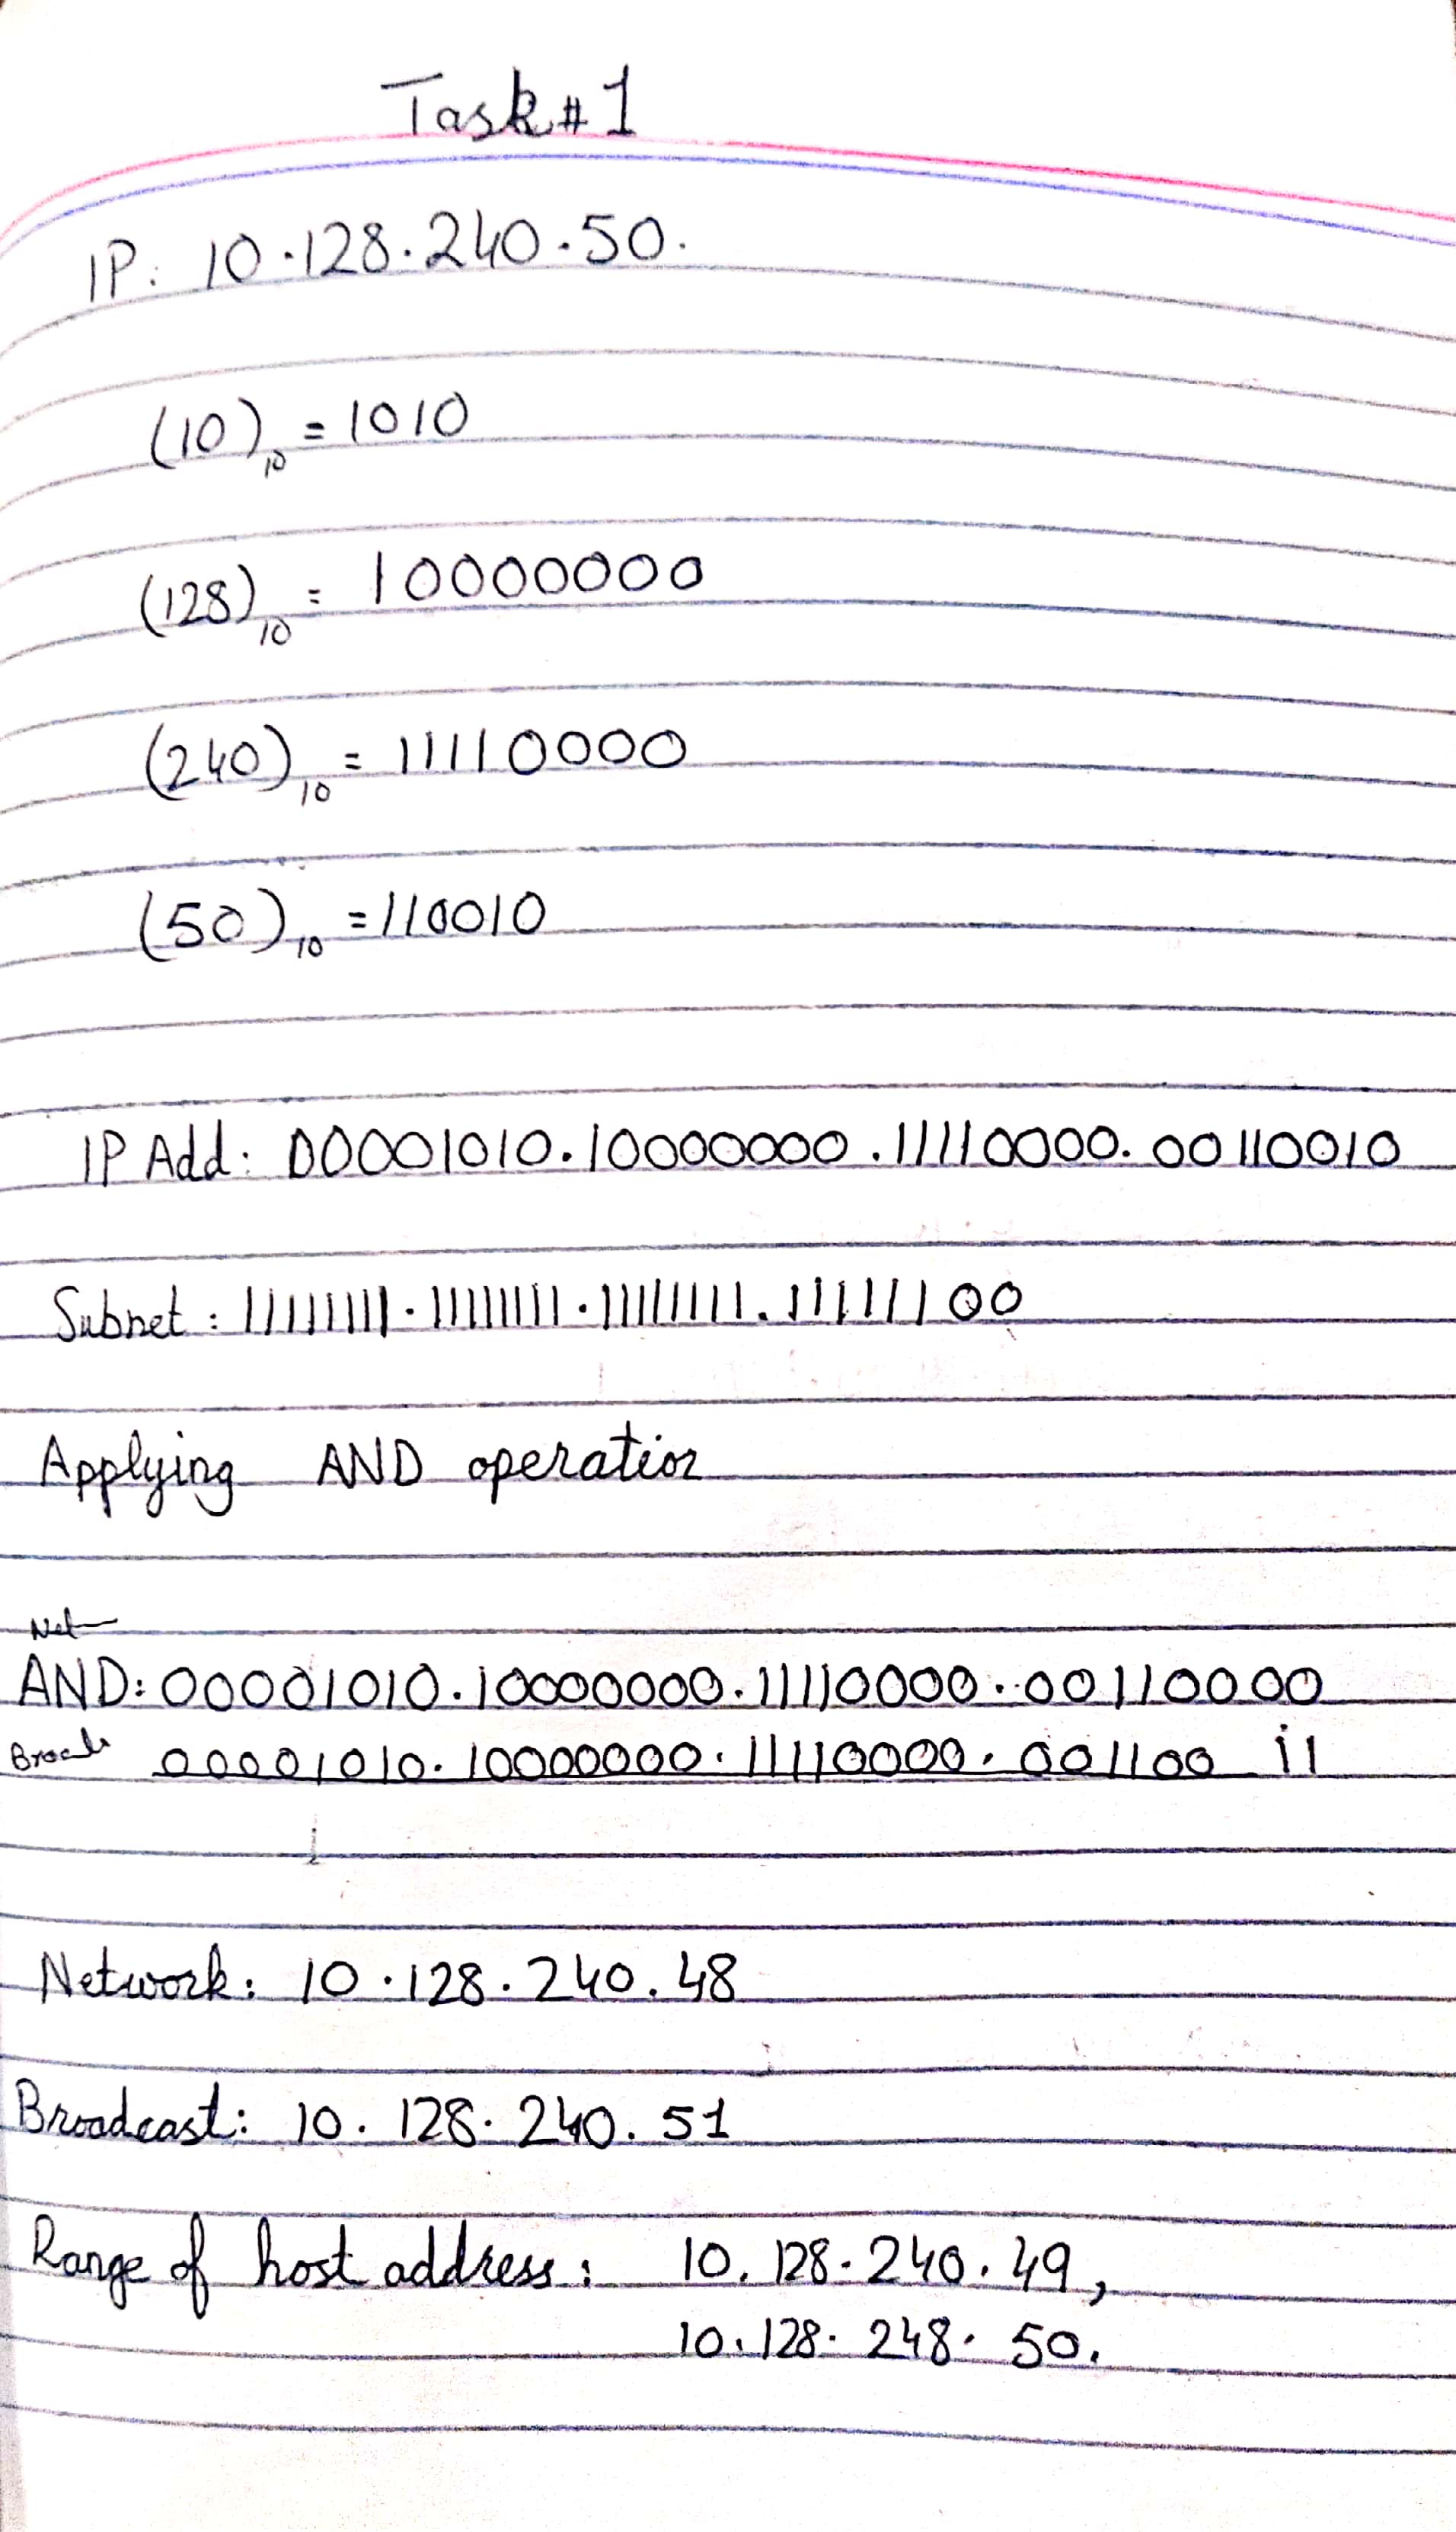 Task#1
IP: 10.128.240.50.
(10)₁₀ = 1010
(128)₁₀ = 10000000
(240)₁₀ = 11110000
(50)₁₀ = 110010
IP Add: 00001010.10000000.11110000.00110010
Subnet: 11111111.11111111.11111111.11111100
Applying AND operation
Net
AND: 00001010.10000000.11110000.00110000
00001010.10000000.11110000.00110011
Network: 10.128.240.48
Broadcast: 10.128.240.51
Range of host address: 10.128.240.49,
10.128.248.50.